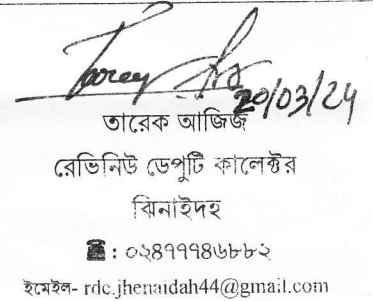 20/03/24
তারেক আজিজ
রেভিনিউ ডেপুটি কালেক্টর
ঝিনাইদহ
☎ : ০২৪৭৭৭৪৬৮৮২
ইমেইল- rdc.jhenaidah44@gmail.com